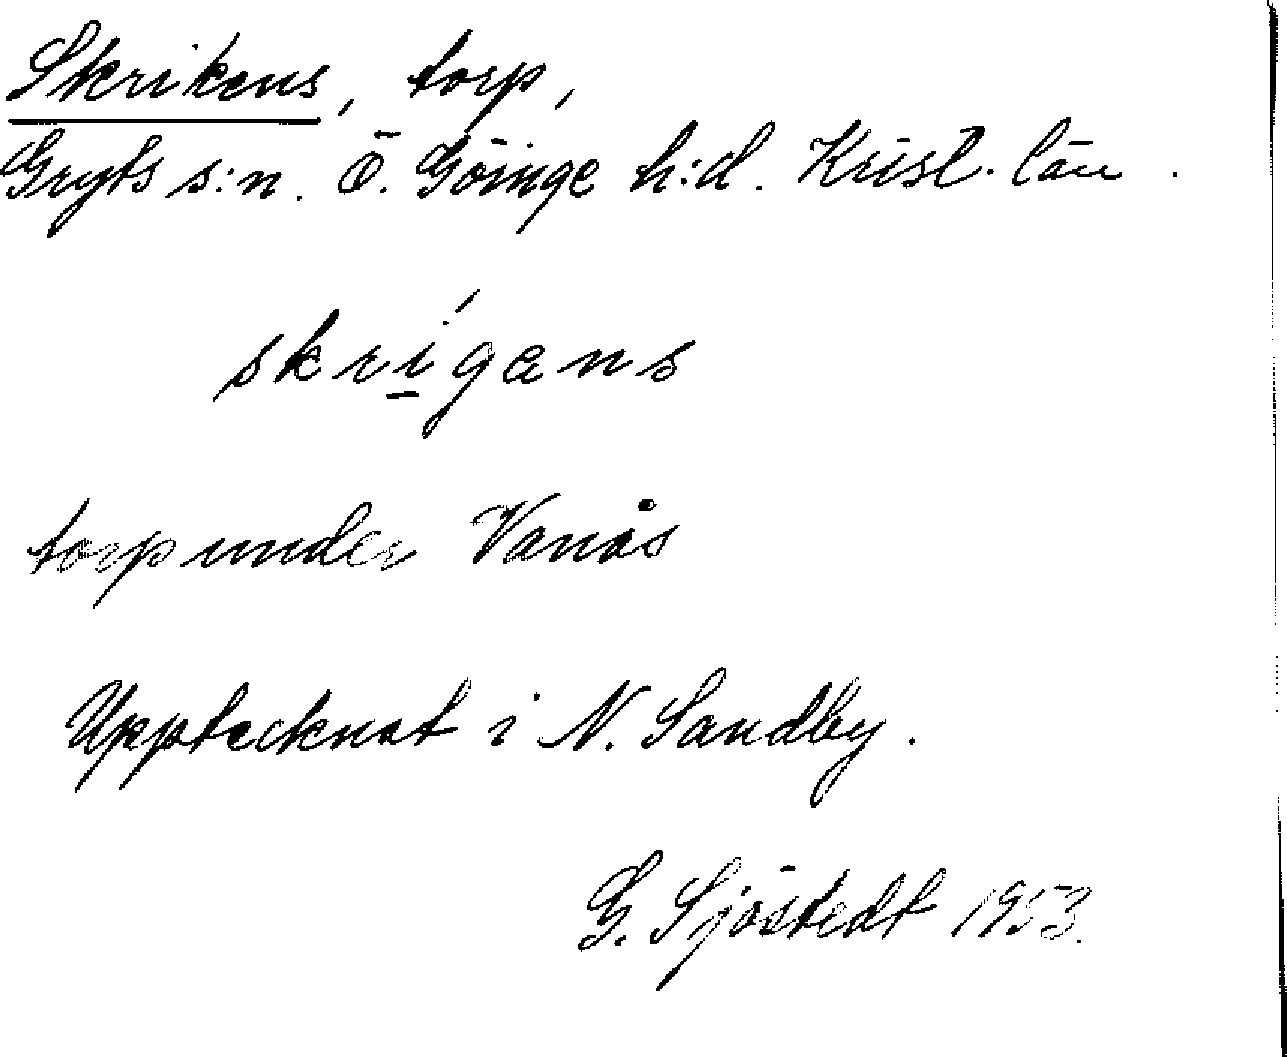 Skrikens, torp,
Gryts s:n. Ö. Göinge h:d. Krist. län.
skrígans
torp under Vanås
Upptecknat i N. Sandby.
G. Sjöstedt 1953.